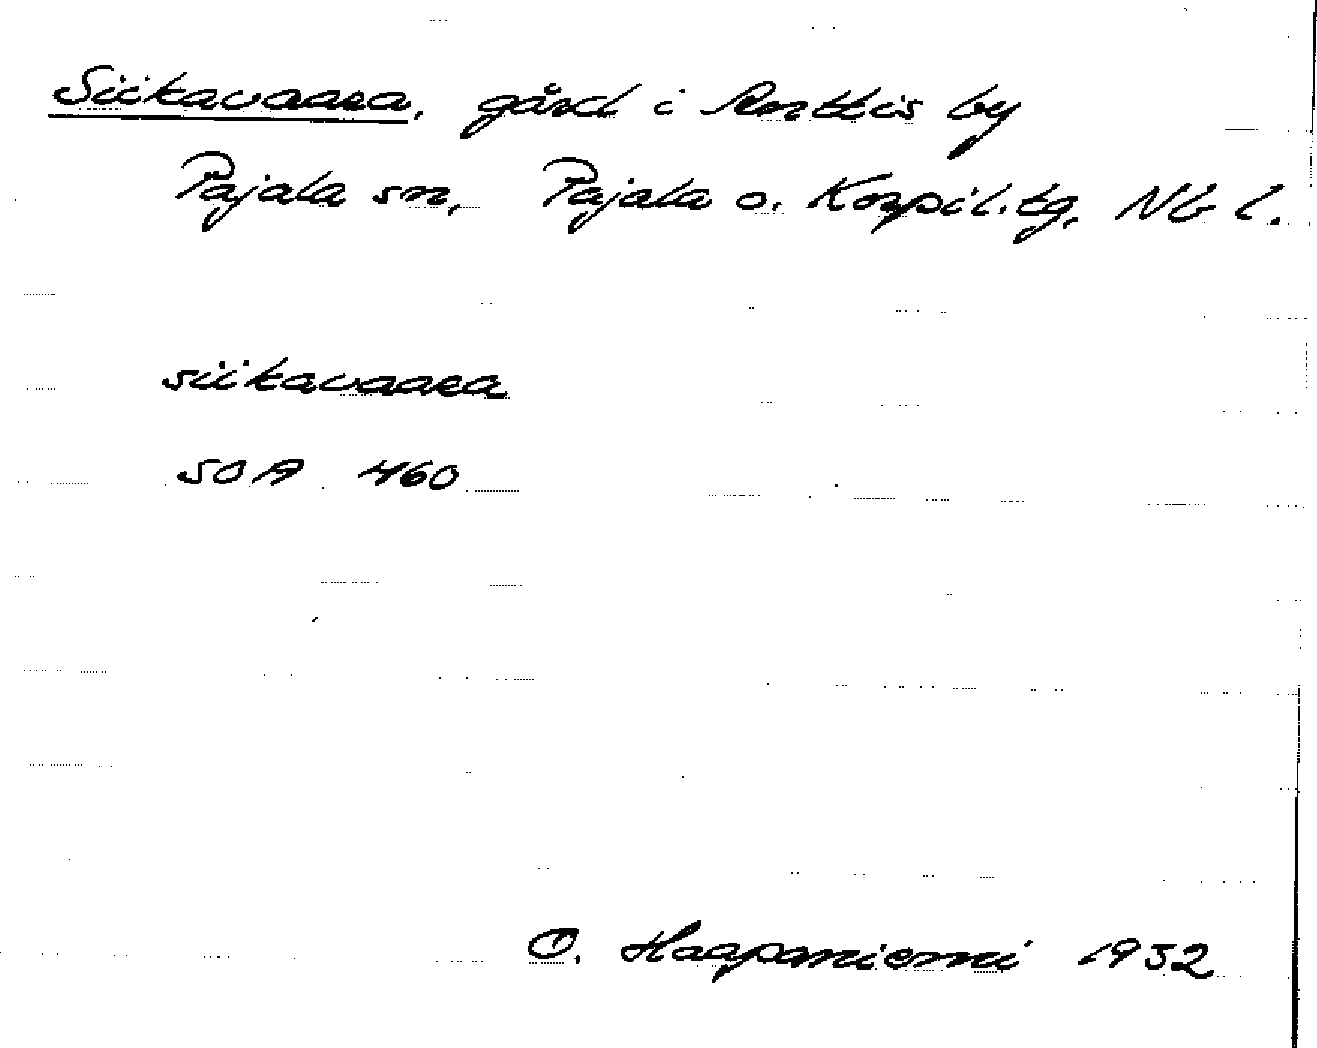 Siikavaara, gård i Anttis by
Pajala sn, Pajala o. Korpil.tg, Nb l.
siikavaara
SOA 460
O. Haapaniemi 1932